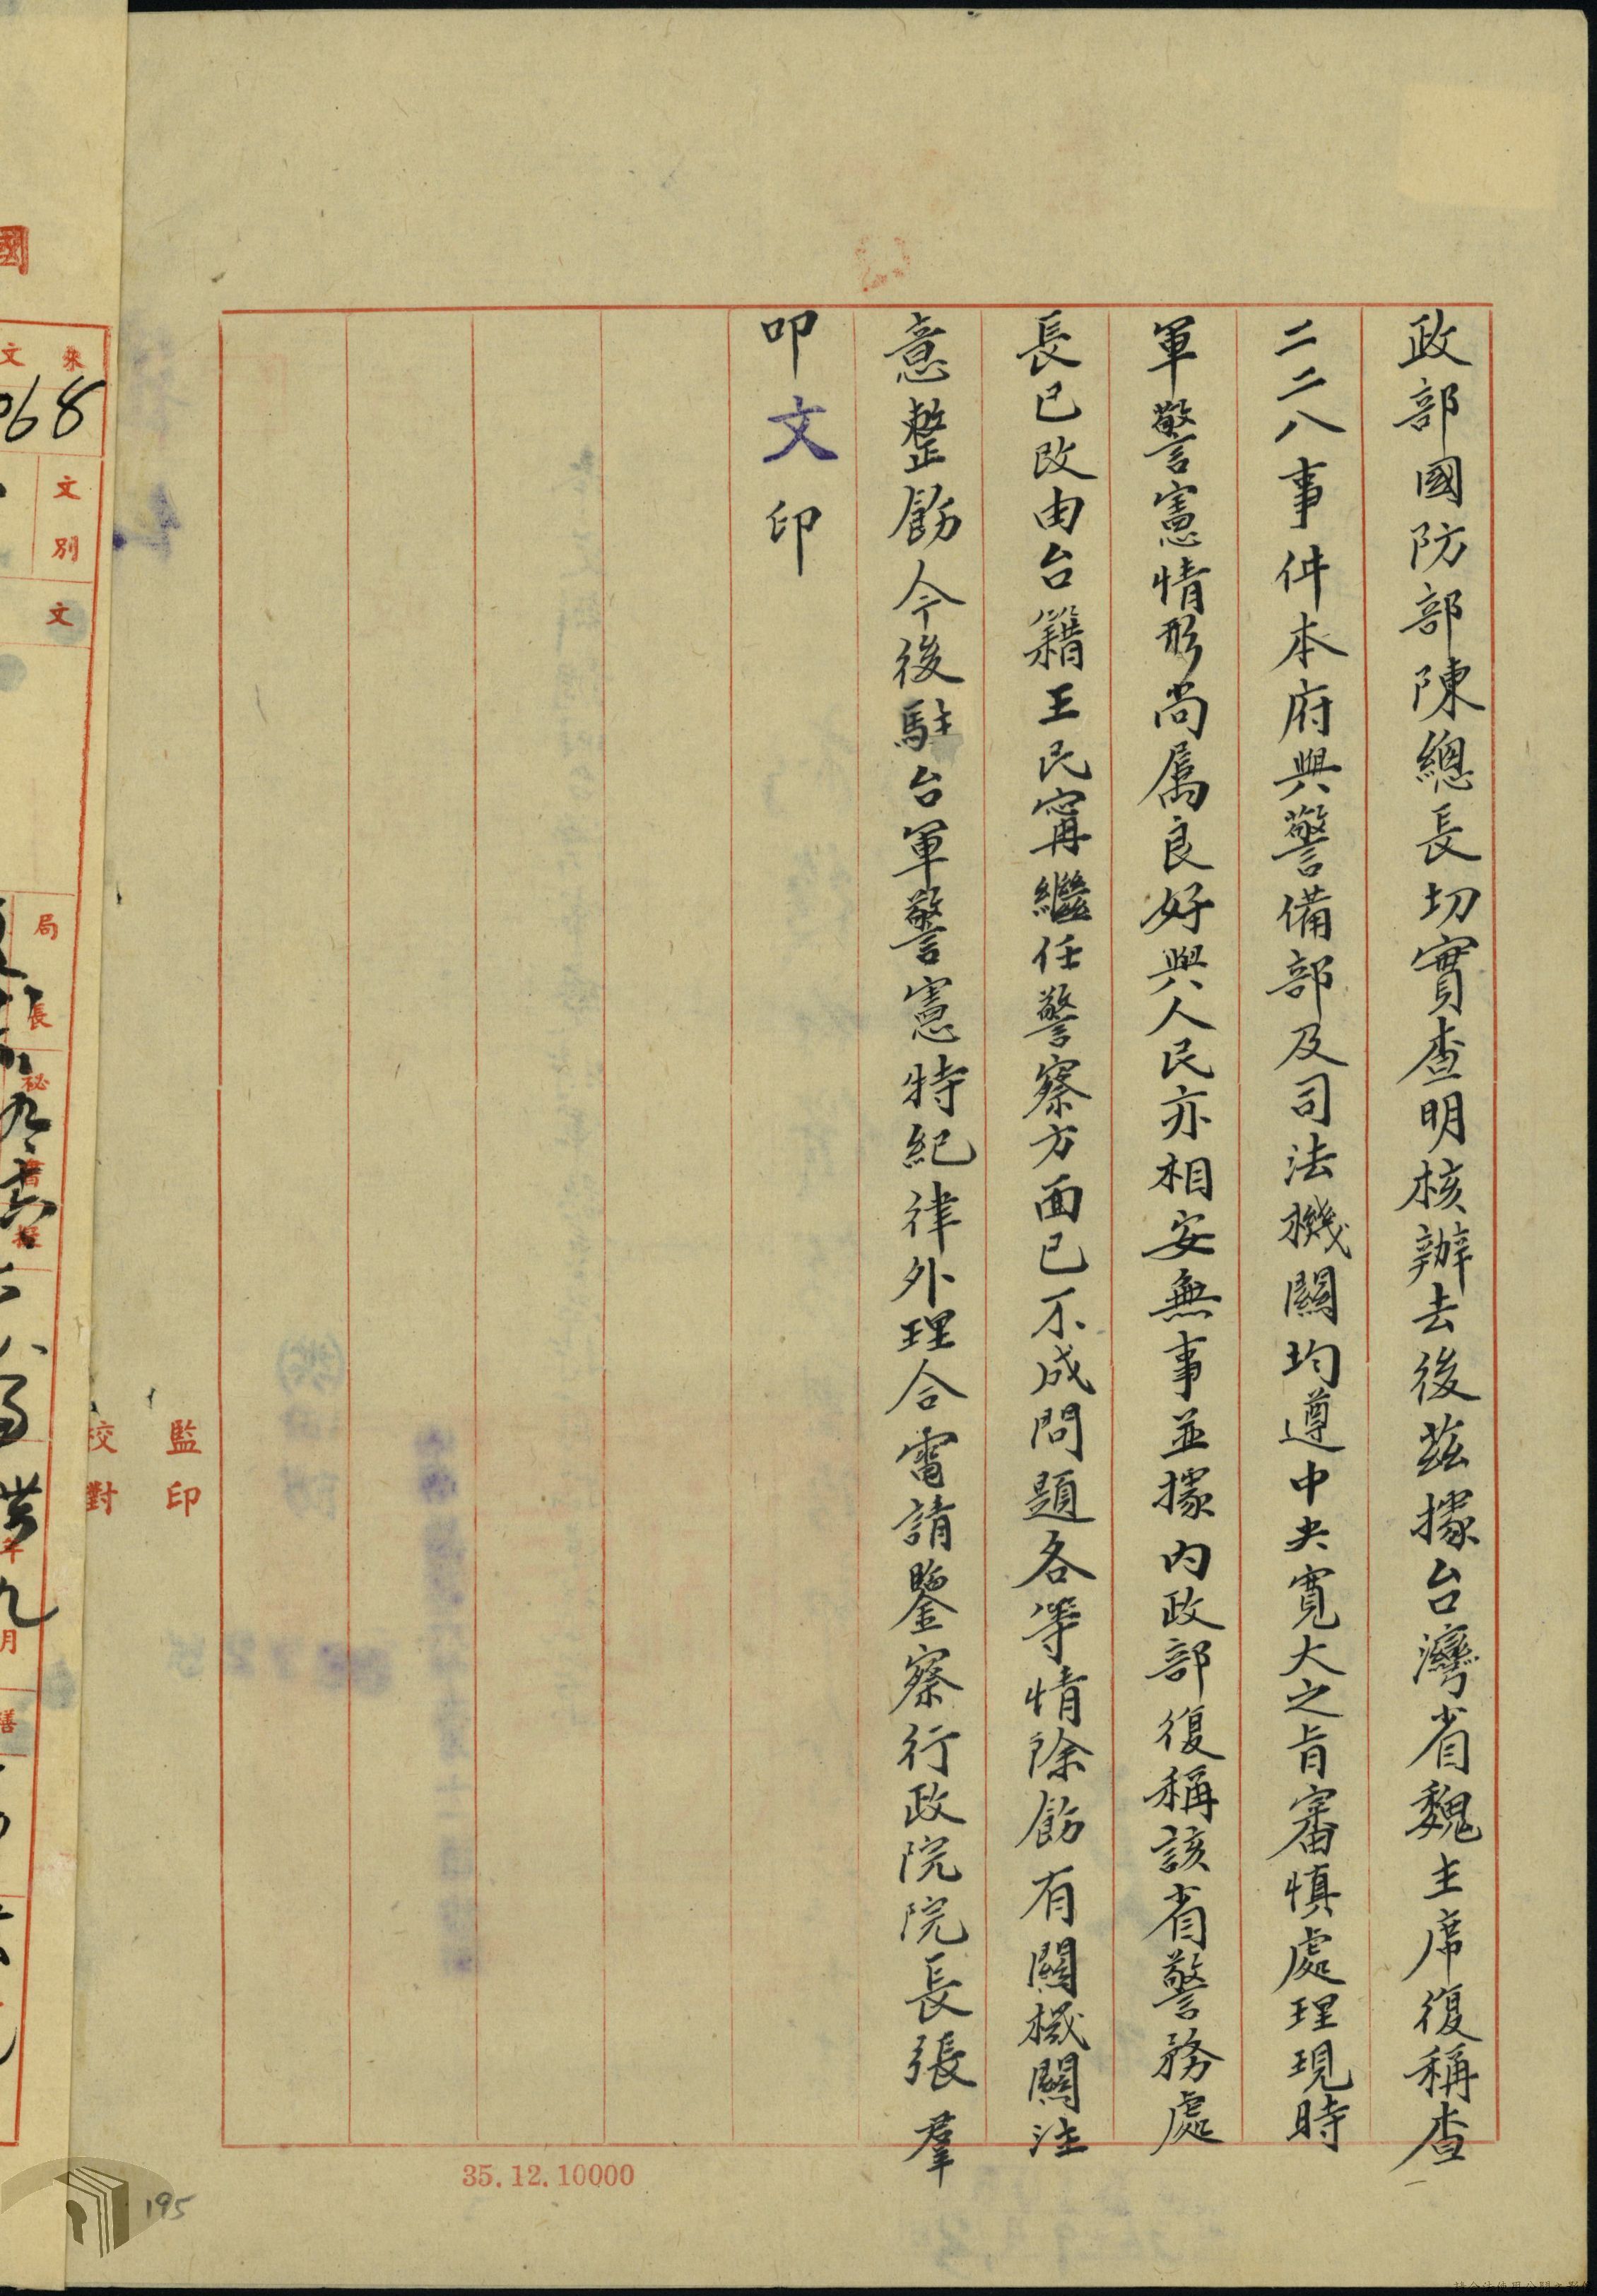 政部國防部陳總長切實查明核辦去後茲據台灣省魏主席復稱查
二二八事件本府與警備部及司法機關均遵中央寬大之旨審慎處理現時
軍警憲情形尚屬良好與人民亦相安無事並據內政部復稱該省警務處
長已改由台籍王民寗繼任警察方面已不成問題各等情除飭有關機關注
意整飭今後駐台軍警憲特紀律外理合電請鑒察行政院院長張羣
叩文印
監印
校對
35.12.10000
195
國
來文
068
文別
文
局長
秘書
九
年
九月
繕